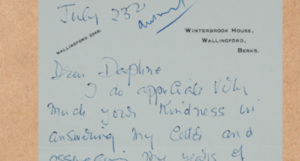 July 23rd
WINTERBROOK HOUSE,
WALLINGFORD,
BERKS.
WALLINGFORD 2248.
Dear Daphne
I do appreciate very
much your kindness in
answering my letter and
my years of